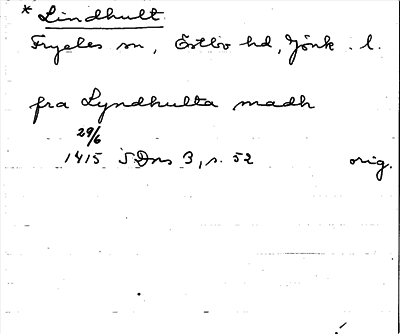 * Lindhult
Fryeles sn, Östbo hd, Jönk. l.
fra Lyndhulta madh
29/6
1415 SDns 3, s. 52 orig.